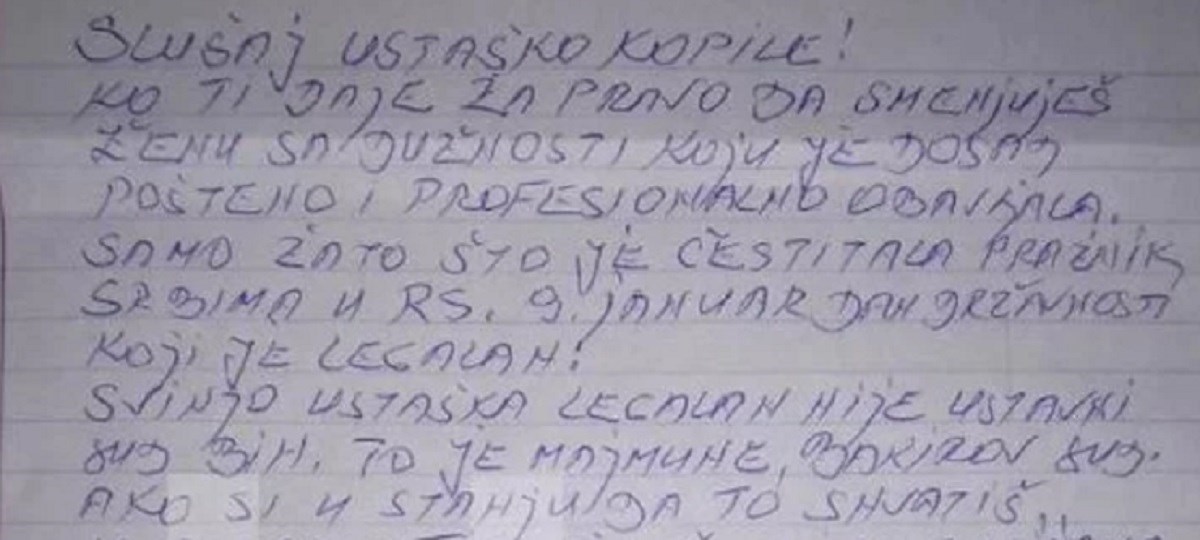 SLUŠAJ USTAŠKO KOPILE!
KO TI DAJE ZA PRAVO DA SMENJUJEŠ
ŽENU SA DUŽNOSTI KOJU JE DOSAD
POŠTENO I PROFESIONALNO OBAVLJALA.
SAMO ZATO ŠTO JE ČESTITALA PRAZNIK
SRBIMA U RS. 9. JANUAR DAN DRŽAVNOSTI
KOJI JE LEGALAN!
SVINJO USTAŠKA LEGALAN NIJE USTAVNI
SUD BIH. TO JE MAJMUNE, BAKIROV SUD.
AKO SI U STANJU DA TO SHVATIŠ